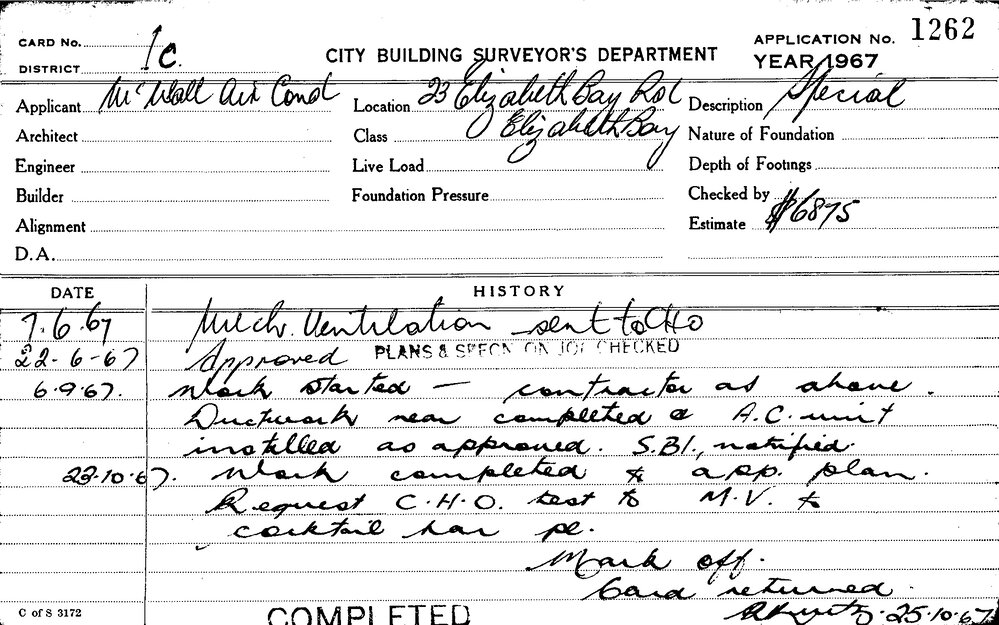 CARD No.
1c.
CITY BUILDING SURVEYOR'S DEPARTMENT
APPLICATION No. 1262
DISTRICT
YEAR 1967
Applicant Mc Wall Air Cond
Location 23 Elizabeth Bay Rd
Elizabeth Bay
Description Special
Architect
Class
Nature of Foundation
Engineer
Live Load
Depth of Footings
Builder
Foundation Pressure
Checked by
Alignment
Estimate $6875
D.A.
DATE
HISTORY
7.6.67 Mech. Ventilation sent to CHO
22-6-67 Approved PLANS & SPECN ON JOB CHECKED
6.9.67. Work started — contractor as above.
Ductwork near completed & A.C. unit
installed as approved. S.B.I., notified.
23.10.67. Work completed to app. plan.
Request C.H.O. test to M.V. to
cocktail bar pl.
Mark off.
Card returned.
25.10.67.
C of S 3172
COMPLETED